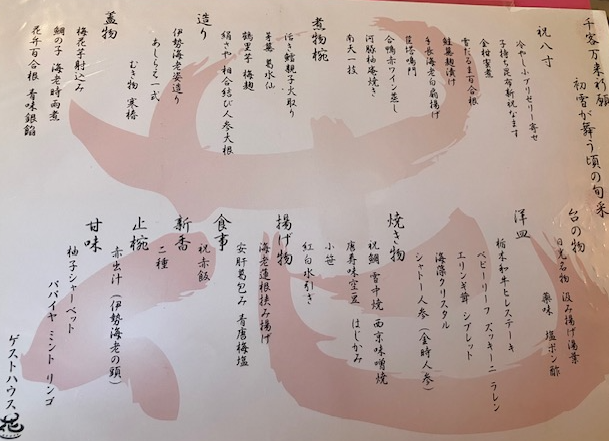 千客万来祈願
初雪が舞う頃の旬采
祝八寸
冷やし小ブリゼリー寄せ
子持ち昆布新祝なます
金柑蜜煮
雪だるま百合根
鮭菊麹漬け
手長海老白扇揚げ
昆塔鳴門
合鴨赤ワイン蒸し
河豚柚庵焼き
南天一枝
煮物椀
活き鱈親子火取り
芽葉 葛水仙
鶴里芋 梅麹
絹さや 相合結び人参大根
造り
伊勢海老姿造り
あしらえ一式
むき物 寒椿
蓋物
梅花芋射込み
鯛の子 海老時雨煮
花弁百合根 青味銀餡
台の物
日光名物 汲み揚げ湯葉
薬味 塩ポン酢
洋皿
栃木和牛ヒレステーキ
ベビーリーフ ズッキーニ ラレン
エリンギ茸 シブレット
海藻クリスタル
シャトー人参(金時人参)
焼き物
祝鯛 雪中焼 西京味噌焼
唐寿味空豆 はじかみ
小笹
紅白水引き
揚げ物
海老蓮根挟み揚げ
安肝葛包み 青唐梅塩
食事
祝赤飯
新香
二種
止椀
赤出汁(伊勢海老の頭)
甘味
柚子シャーベット
パパイヤ ミント リンゴ
ゲストハウス